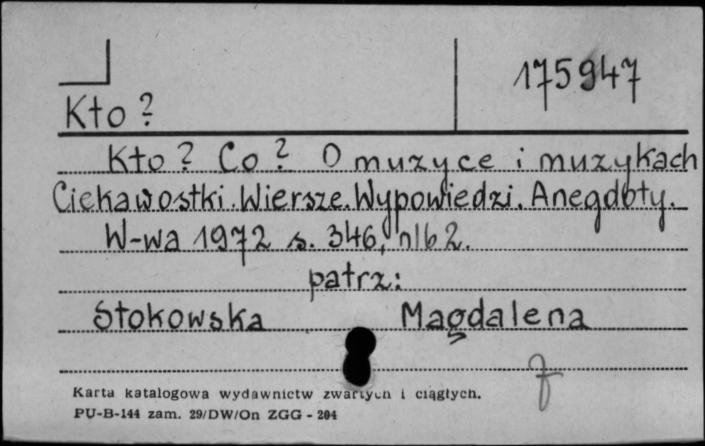 175947
Kto?
Kto? Co? O muzyce i muzykach
Ciekawostki. Wiersze. Wypowiedzi. Anegdoty.
W-wa 1972 s. 346, nlb 2.
patrz:
Stokowska Magdalena
Karta katalogowa wydawnictw zwartych i ciągłych.
PU-B-144 zam. 29/DW/On ZGG - 204